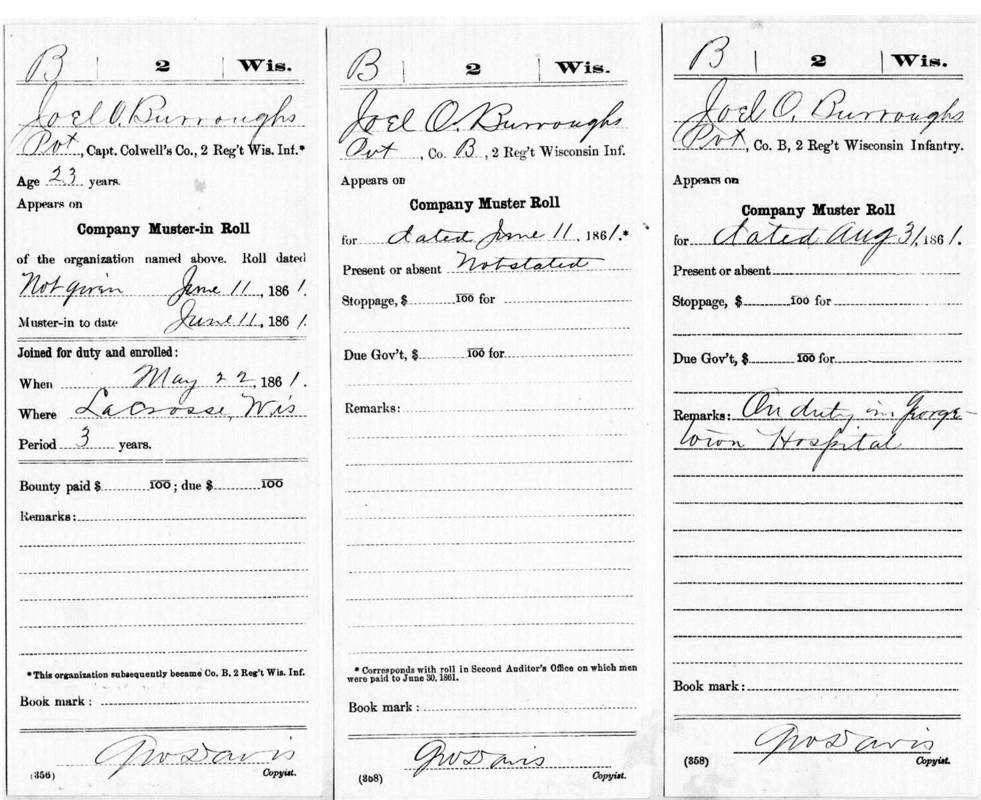 B | 2 | Wis.
Joel O. Burroughs
Pvt, Capt. Colwell's Co., 2 Reg't Wis. Inf.*
Age 23 years.
Appears on
Company Muster-in Roll
of the organization named above. Roll dated
Not given June 11, 1861.
Muster-in to date June 11, 1861.
Joined for duty and enrolled:
When May 22, 1861.
Where LaCrosse, Wis
Period 3 years.
Bounty paid $ 100; due $ 100
Remarks:
*This organization subsequently became Co. B, 2 Reg't Wis. Inf.
Book mark:
Geo Davis
(356) Copyist.
B | 2 | Wis.
Joel O. Burroughs
Pvt, Co. B, 2 Reg't Wisconsin Inf.
Appears on
Company Muster Roll
for dated June 11, 1861.*
Present or absent Not stated
Stoppage, $ 100 for
Due Gov't, $ 100 for
Remarks:
*Corresponds with roll in Second Auditor's Office on which men
were paid to June 30, 1861.
Book mark:
Geo Davis
(358) Copyist.
B | 2 | Wis.
Joel O. Burroughs
Pvt, Co. B, 2 Reg't Wisconsin Infantry.
Appears on
Company Muster Roll
for dated Aug 31, 1861.
Present or absent
Stoppage, $ 100 for
Due Gov't, $ 100 for
Remarks: On duty in George-
town Hospital
Book mark:
Geo Davis
(358) Copyist.